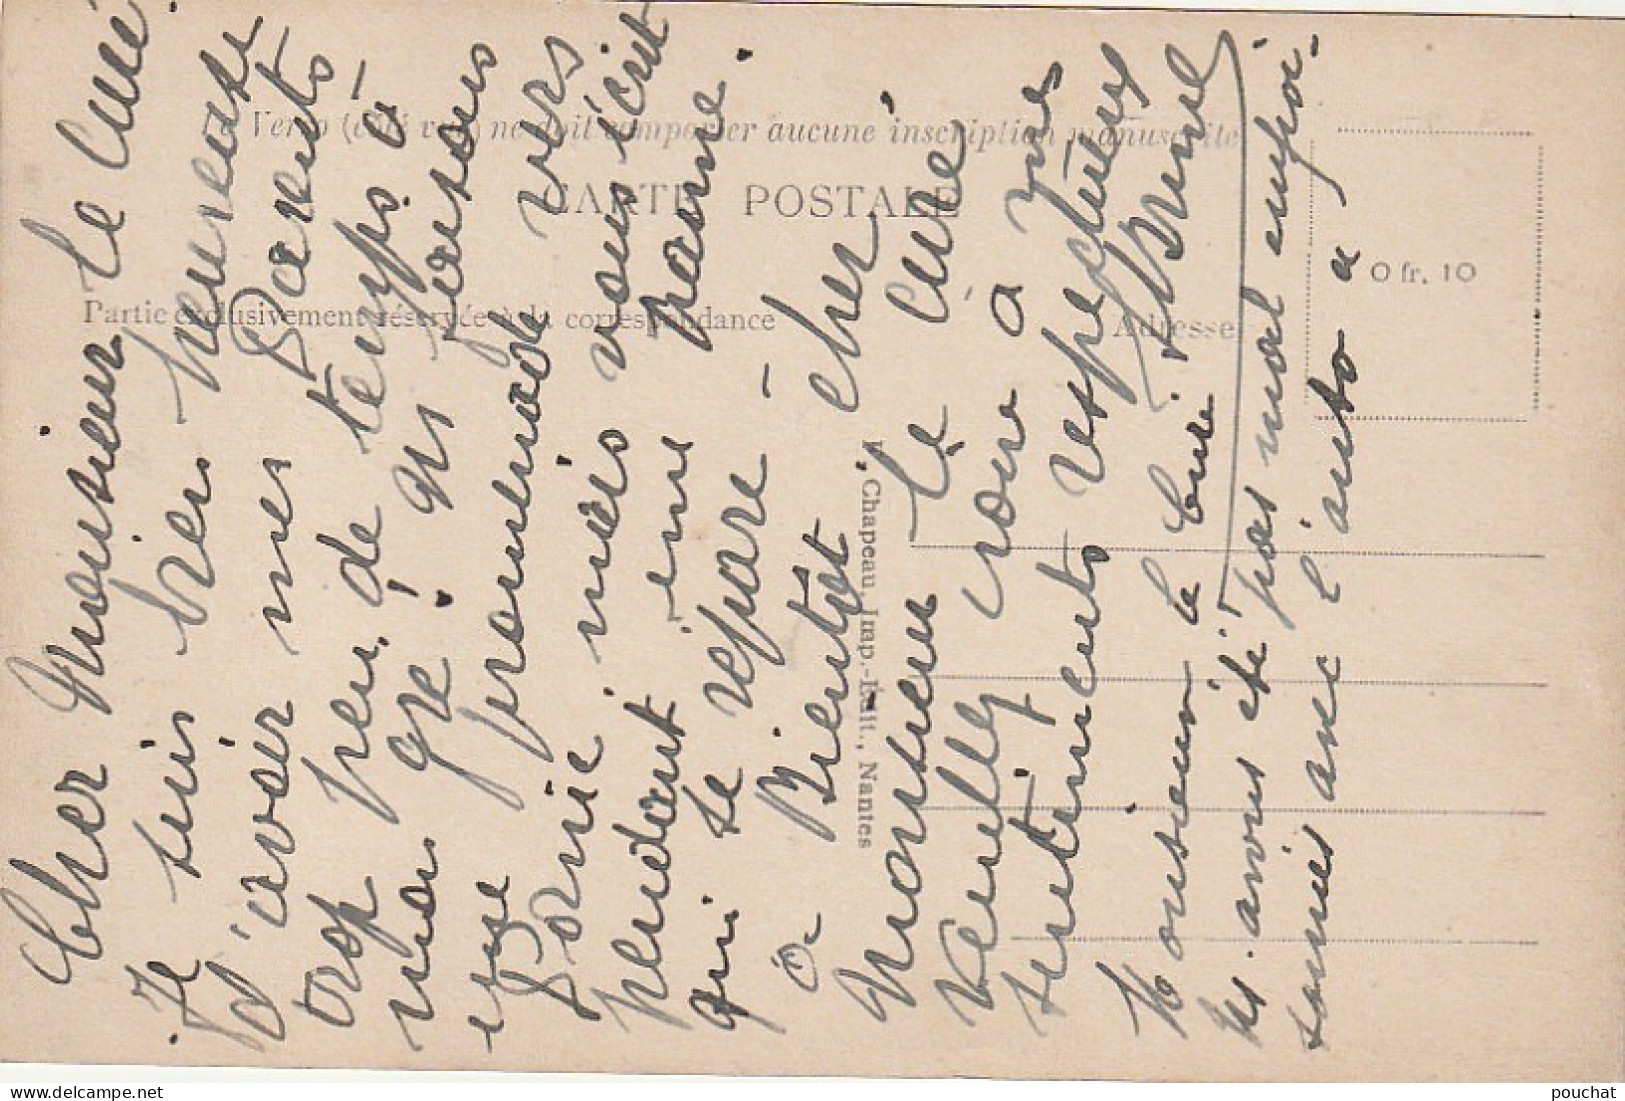 Verso (côté vue) ne doit comporter aucune inscription manuscrite
CARTE POSTALE
Partie exclusivement réservée à la correspondance
Adresse
0 fr. 10
V. Chapeau, Imp.-Édit., Nantes
Cher Monsieur Le Curé
Je suis bien heureuse
d'avoir mes Parents
trop peu de temps à
mon gré! Ns faisons
une promenade vers
Pornic, mais vous écrit
pendant une panne.
qui se répare -
à Bientôt cher
Monsieur Le Curé
Veuillez croire à mes
sentiments respectueux
Monsieur le Curé,
Ns avons été pas mal empoi-
sonnés avec l'auto a
pouchat